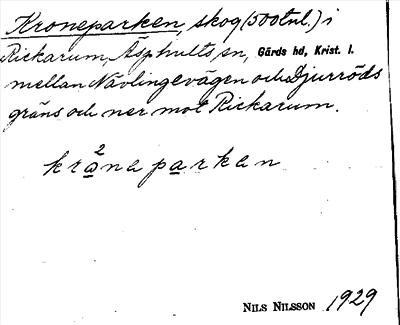 Kroneparken, skog (500 tnl.) i
Rickarum, Äsphults sn, Gärds hd, Krist. l.
mellan Nävlingevägen och Djurröds
gräns och ner mot Rickarum.
2
kråna parkan
NILS NILSSON 1929